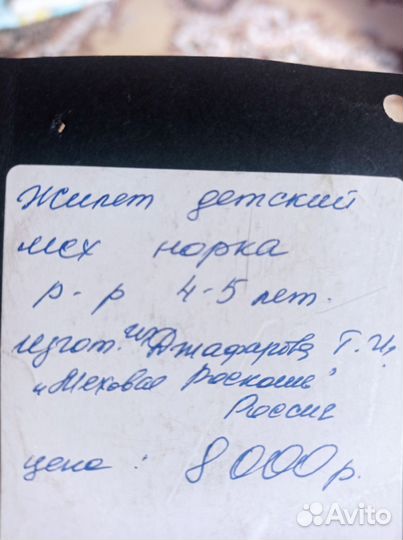 Жилет детский
мех норка
р-р 4-5 лет.
изгот. ИП Джафарова Г.И.
"Меховая Роскошь"
Россия
цена : 8000 р.
Avito